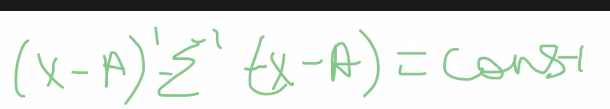 (x-A)' Σ⁻¹ (x-A) = const